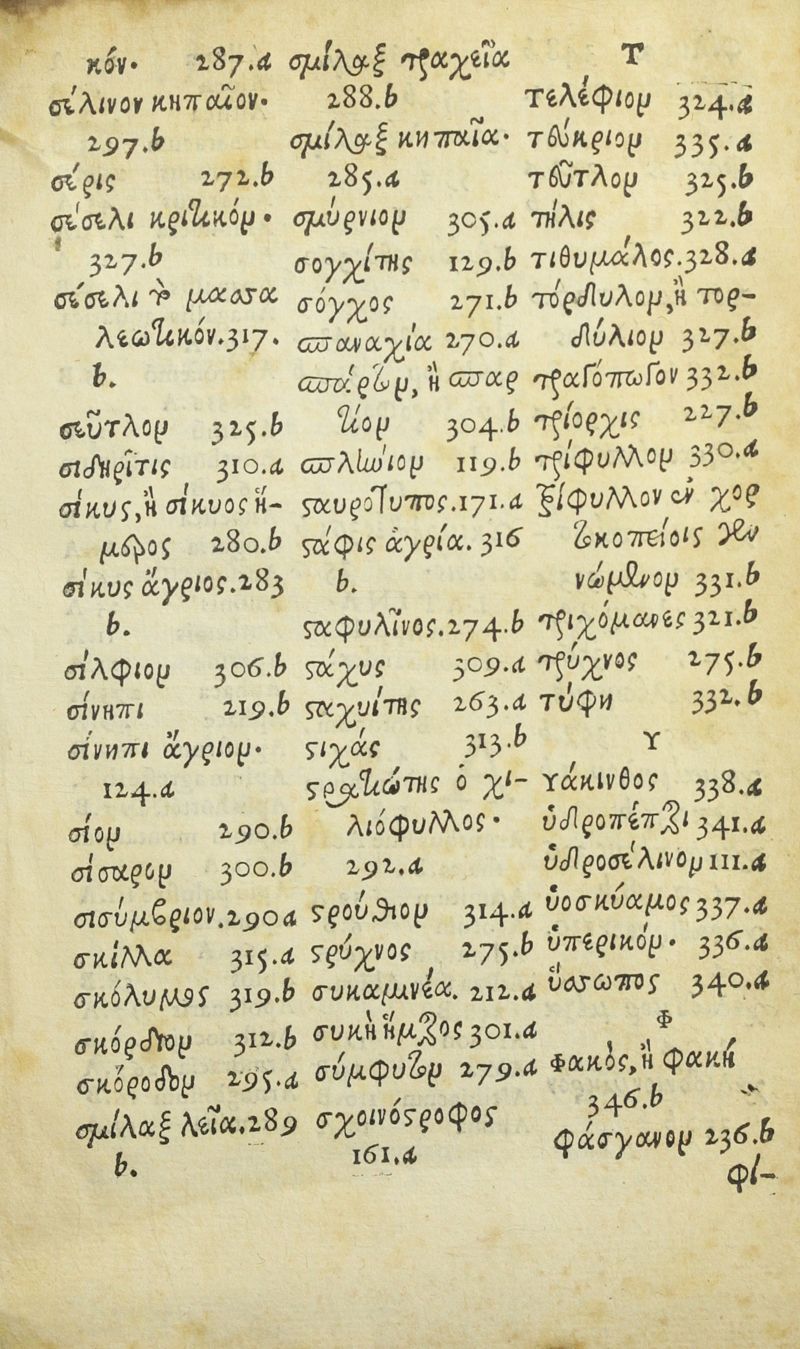 κόν. 287.a
σέλινον κηπαῖον.
297.b
σέρις 272.b
σέσελι κρητικόν.
327.b
σέσελι τὸ μασσα
λεωτικόν. 317.
b.
σεῦτλον 325.b
σιδηρῖτις 310.a
σίκυς, ἢ σίκυος ἥ-
μερος 280.b
σίκυς ἄγριος. 283
b.
σίλφιον 306.b
σίνηπι 219.b
σίνηπι ἄγριον.
124.a
σίον 290.b
σίσαρον 300.b
σισύμβριον. 290a
σκίλλα 315.a
σκόλυμος 319.b
σκόρδιον 312.b
σκόροδον 295.a
σμίλαξ λεῖα. 289
b.
σμίλαξ τραχεῖα
288.b
σμίλαξ κηπαῖα.
285.a
σμύρνιον 305.a
σογχίτης 129.b
σόγχος 271.b
σπαναχία 270.a
σπάρτον, ἢ σπαρ
τίον 304.b
σπλίωιον 119.b
σταυρότυπος. 171.a
στάφις ἀγρία. 316
b.
σταφυλῖνος. 274.b
στάχυς 309.a
σταχυίτης 263.a
στιχάς 313.b
στρατιώτης ὁ χι-
λιόφυλλος.
292.a
στρούθιον 314.a
στρύχνος 275.b
συκαμινέα. 212.a
συκὴ ἥμερος 301.a
σύμφυτον 279.a
σχοινόστροφος
161.a
Τ
Τελέφιον 324.a
τεύκριον 335.a
τεῦτλον 325.b
τῆλις 322.b
τιθυμάλος. 328.a
τόρδυλον, ἢ τορ-
δύλιον 327.b
τραγόπωγον 332.b
τρίορχις 227.b
τρίφυλλον 330.a
τρίφυλλον ἐν χορ
τοκοπείοις γεν
νώμενον 331.b
τριχόμανες 321.b
τρύχνος 275.b
τύφη 332.b
Υ
Υάκινθος 338.a
ὑδροπέπερι 341.a
ὑδροσέλινον 111.a
ὑοσκύαμος 337.a
ὑπερικόν. 336.a
ὕσσωπος 340.a
Φ
Φακός, ἢ φακῆ
346.b
φάσγανον 236.b
φί-